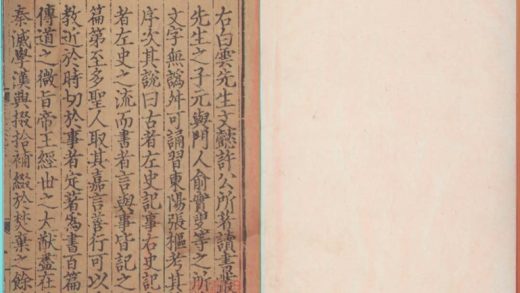 右白雲先生文懿許公所著讀書叢
先生之子元與門人俞實叟等之所
文字無譌舛可誦習東陽張樞考其
序次其說曰古者左史記事右史記
者左史之流而書者言與事皆記之
篇第至多聖人取其嘉言善行可以
教近於時切於事者定著為書百篇
傳道之微旨帝王經世之大猷盡在
秦滅學漢興掇拾補綴於焚棄之餘